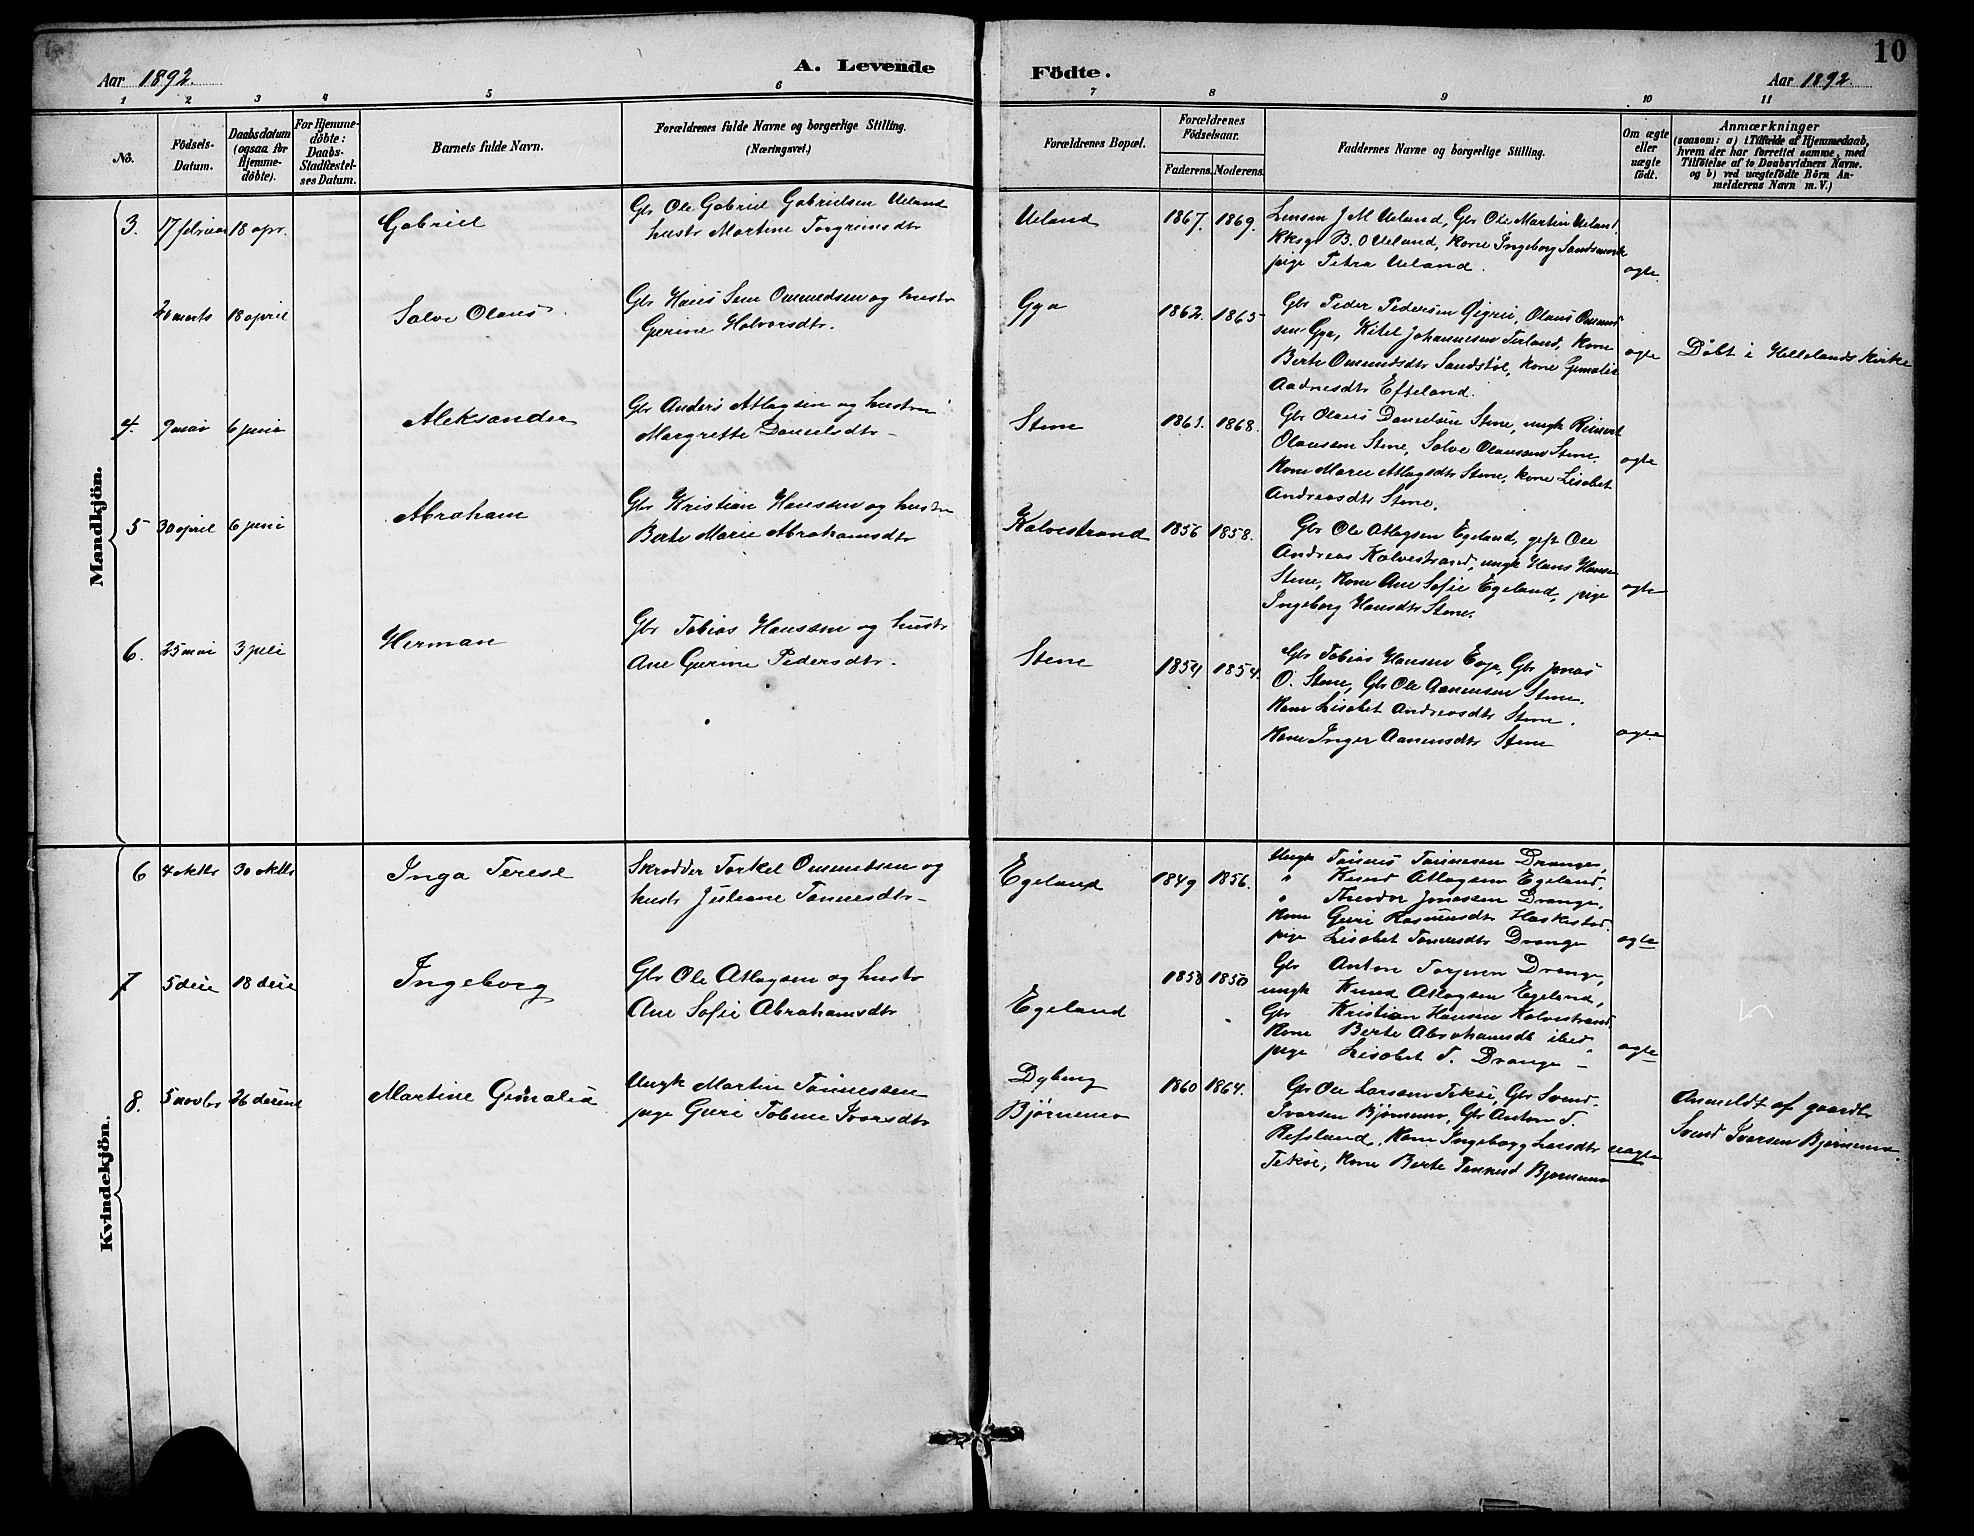 10
Aar 1892.
A. Levende
Födte.
Aar 1892.
1 2 3 4 5 6 7 8 9 10 11
No.
Födsels-
Datum.
Daabsdatum
(ogsaa for
Hjemme-
döbte).
For Hjemme-
döbte:
Daabs-
Stadfæstel-
ses Datum.
Barnets fulde Navn.
Forældrenes fulde Navne og borgerlige Stilling.
(Næringsvei.)
Forældrenes Bopæl.
Forældrenes
Födselsaar.
Faderens. Moderens.
Faddernes Navne og borgerlige Stilling.
Om ægte
eller
uægte
födt.
Anmærkninger
(saasom: a) i Tilfælde af Hjemmedaab,
hvem der har forrettet samme, med
Tilföielse af to Daabsvidners Navne.
og b) ved uægtefödte Börn An-
melderens Navn m. V.)
Mandkjön.
3. 17 februar 18 apr. Gabriel
Gbr Ole Gabriel Gabrielsen Ueland
hustr Martine Torgrimsdtr
Ueland 1867. 1869.
Lensm J M Ueland, Gbr Ole Martin Ueland
Kksgr B. O Ueland, Kone Ingeborg Sandsmark
pige Petra Ueland.
ægte
20 marts 18 april Salve Olaus
Gbr Hans Sem Ommedsen og hustr
Gurine Halvorsdtr.
Gya 1862. 1865
Gbr Peder Pedersen Øigrei, Olaus Ommund
sen Gya, Kitel Johannesen Terland, Kone
Berte Ommundsdtr Sandstøl, Kone Gimalie
Aadnesdtr Efteland.
ægte
Døbt i Hellelands Kirke
4. 9 mai 6 juni Aleksander
Gbr Anders Atlagsen og hustru
Margrette Danielsdtr
Stene 1861. 1868.
Gbr Olaus Danielsen Stene, ungk Reinert
Olaussen Stene, Salve Olausen Stene.
Kone Marie Atlagsdtr Stene, kone Lisabet
Andreasdtr Stene.
ægte
5 30 april 6 juni Abraham
Gbr Kristian Hansen og hustru
Berte Marie Abrahamsdtr
Kalvestrand 1856 1858.
Gbr Ole Atlagsen Egeland, gift Ole
Andreas Kalvestrand, ungk Hans Hansen
Stene, Kone Ane Sofie Egeland, pige
Ingeborg Hansdtr Stene.
ægte
6. 25 mai 3 juli Herman
Gbr Tobias Hanssen og hustr
Ane Gurine Pedersdtr.
Stene 1854 1854.
Gbr Tobias Hansen Eeg, Gbr Jonas
O. Stene, Gbr Ole Aanensen Stene.
Kone Lisabet Andreasdtr Stene.
Kone Inger Aanensdtr Stene
ægte
Kvindekjön.
6 4 oktbr 30 oktbr Inga Terese
Skrædder Torkel Ommedsen og
hustr Juliane Tønnesdtr
Egeland 1849 1856.
Ungk Tønnes Tønnesen Drange,
" Knud Atlagsen Egeland,
" Theodor Jonassen Drange,
Kone Guri Rasmusdtr Haskestad
pige Lisabet Tønnesdtr Drange
ægte
7 5 dece 18 dece Ingeborg
Gbr Ole Atlagsen og hustr
Ane Sofie Abrahamsdtr
Egeland 1858 1850
Gbr Anton Torjesen Drange,
ungk Knud Atlagsen Egeland,
Gbr Kristian Hansen Kalvestrand
Kone Berte Abrahamsdt ibid
pige Lisabet T. Drange
ægte
8. 5 novbr 26 decemb Martine Gimalia
Ungk Martin Tønnessen
pige Guri Tobine Ivarsdtr
Dybing
Bjørnemo
1860 1864.
Gbr Ole Larssen Teksе, Gbr Svend.
Ivarsen Bjørnemo, Gbr Anton T.
Refsland, Kone Ingeborg Larsdtr
Tekse, Kone Berte Tønnesd Bjørnemo
uægte
Anmeldt af gaardbr
Svend Ivarsen Bjørnemo.